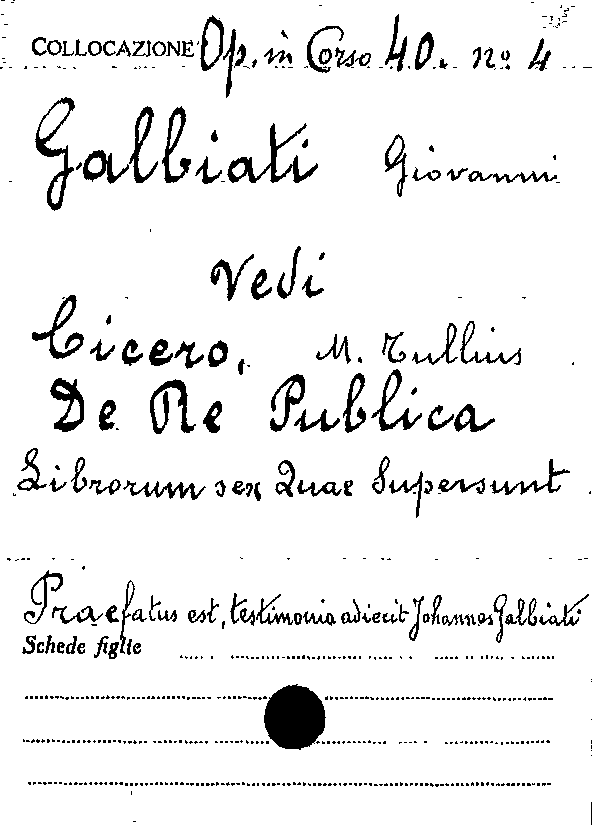 COLLOCAZIONE Op. in Corso 40. no 4
Galbiati Giovanni
Vedi
Cicero, M. Tullius
De Re Publica
Librorum sex Quae Supersunt
Praefatus est, testimonia adiecit Johannes Galbiati
Schede figlie